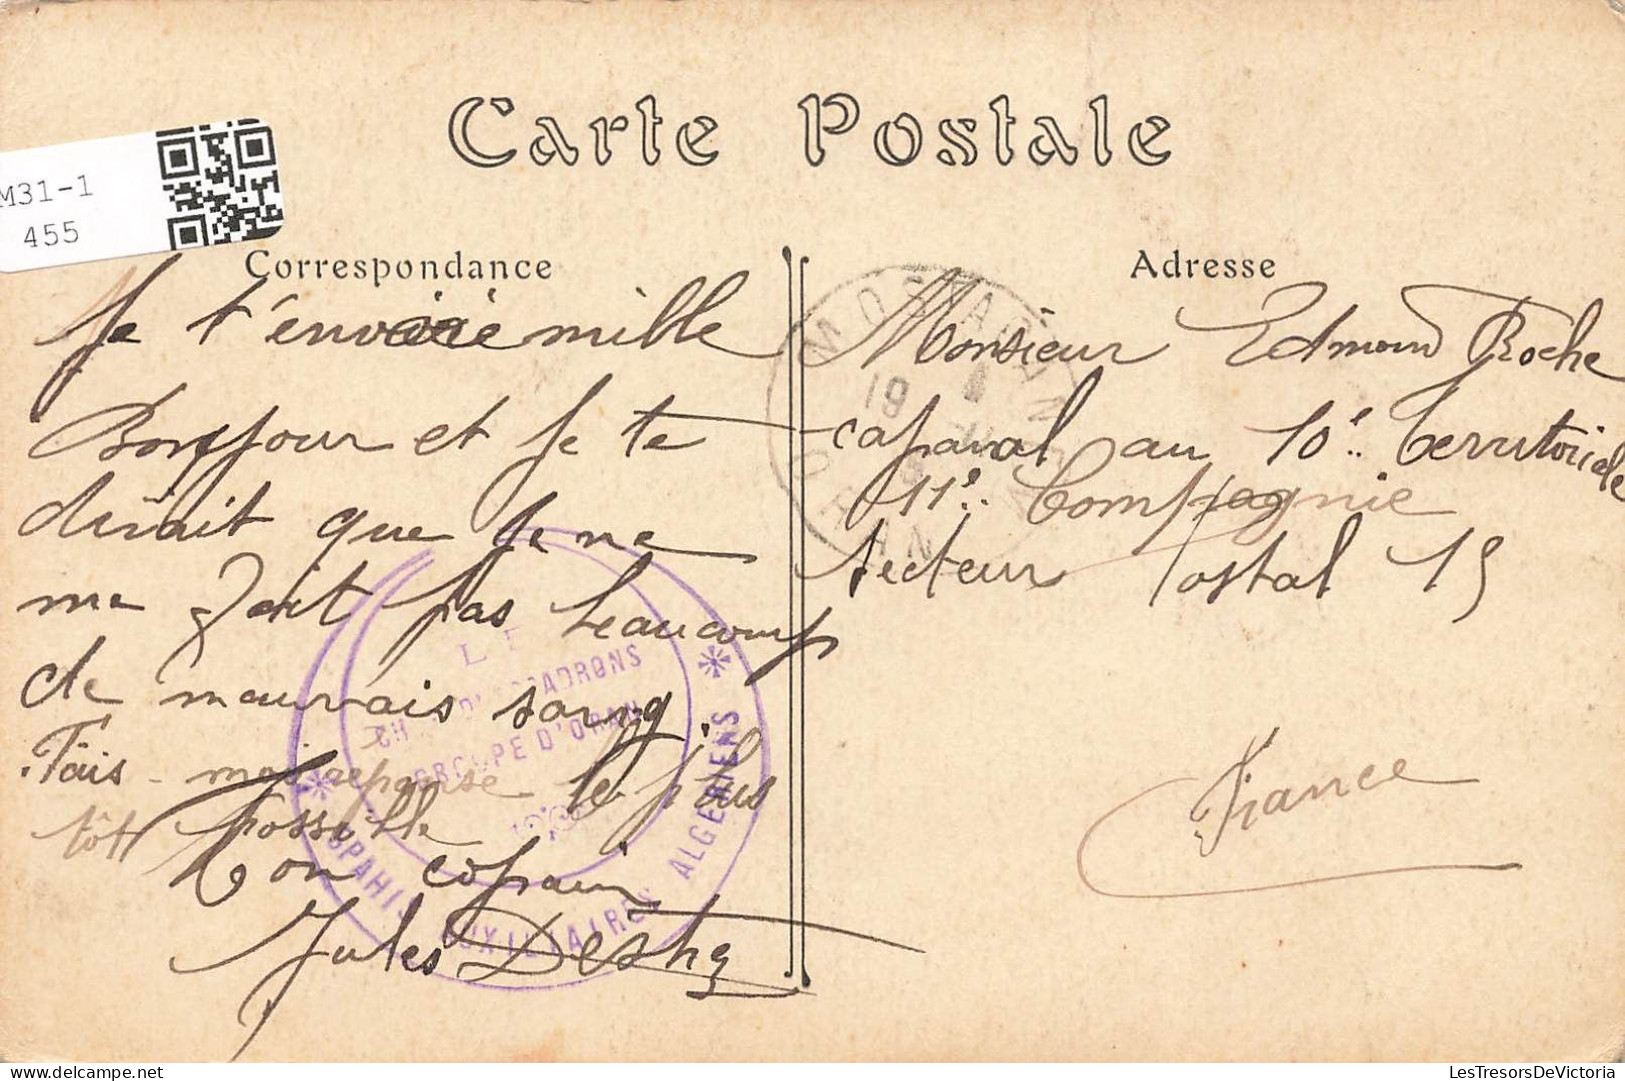 Carte Postale
M31-1
455
Correspondance
Je t'envoie mille
Bonjour et je te
dirait que je ne
me fait pas beaucoup
de mauvais sang.
Fais - moi reponse le plus
tôt possible
Ton copain
Jules
Adresse
Monsieur Edmond Roche
caporal au 10e. Territoriale
11e. Compagnie
Secteur Postal 15
France
MOSTAGANEM
19
ORAN
LE
CHEF D'ESCADRONS
GROUPE D'ORAN
* SPAHIS AUXILIAIRES ALGERIENS *
LesTresorsDeVictoria